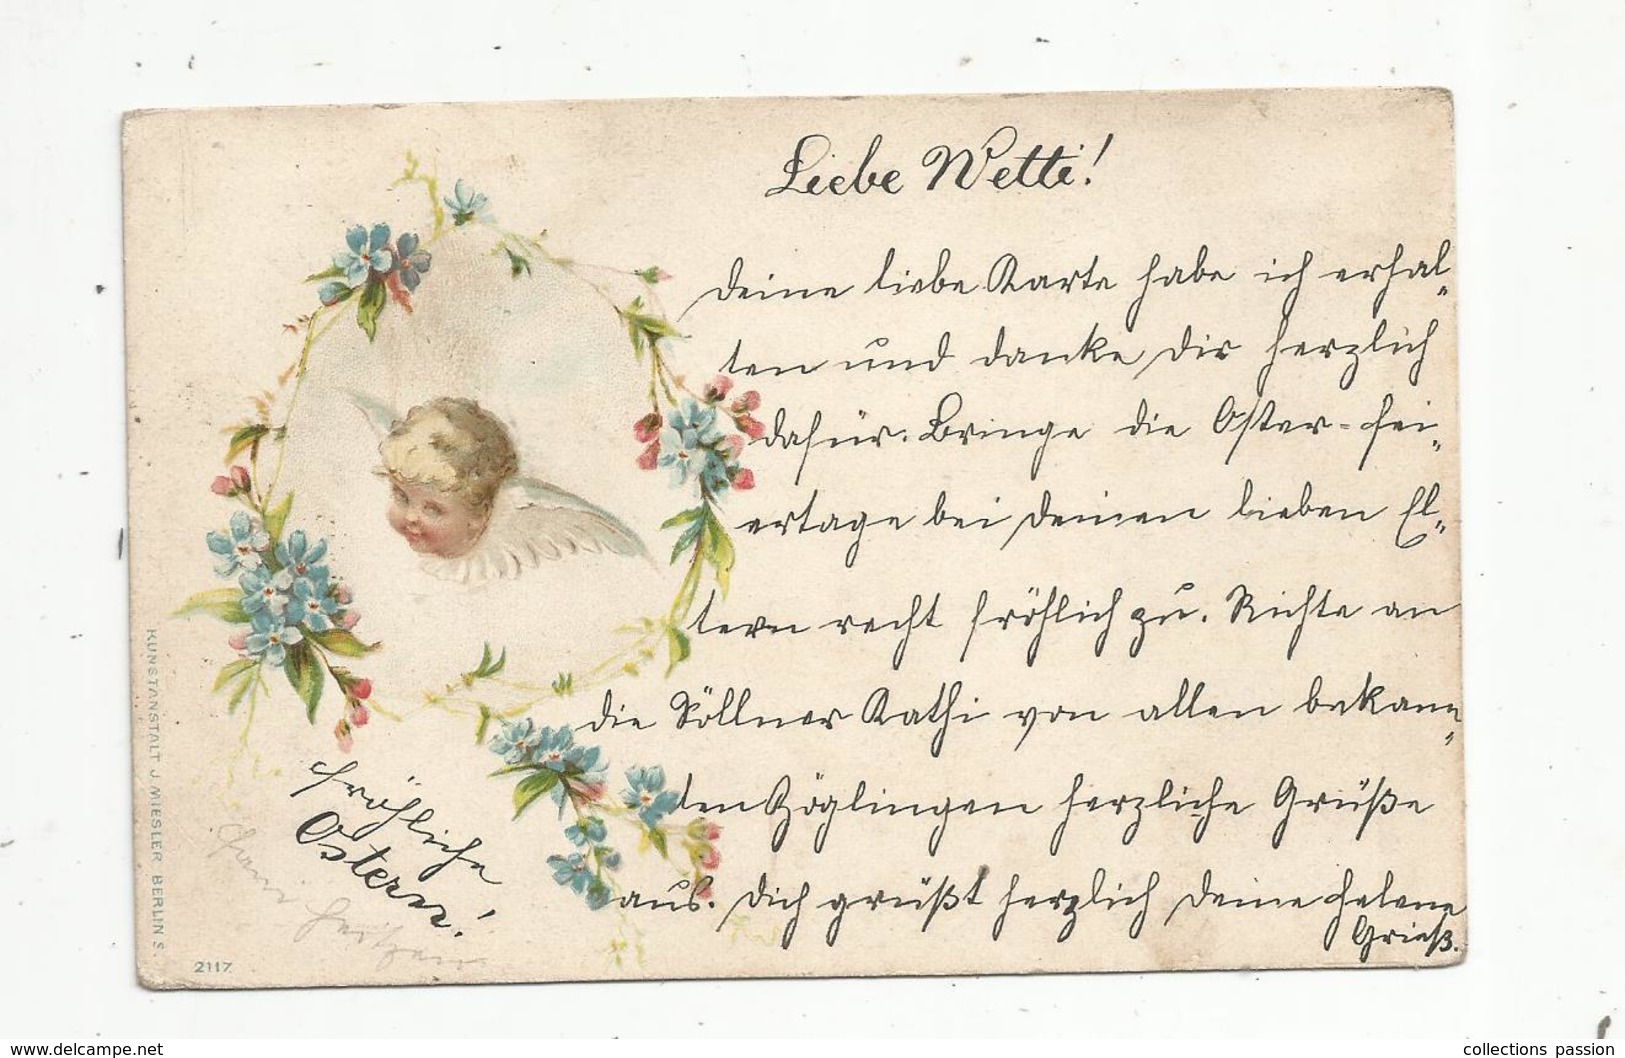 Liebe Wetti!
Deine liebe Karte habe ich erhal-
ten und danke Dir herzlich
dafür. Bringe die Oster-fei-
ertage bei Deinen lieben El-
tern recht fröhlich zu. Richte an
die Söllner Kathi von allen bekann-
ten Zöglingen herzliche Grüße
aus. Dich grüßt herzlich Deine Helene
Grieß.
Fröhliche
Ostern!
KUNSTANSTALT J. MIESLER BERLIN S.
2117
www.delcampe.net
collections passion